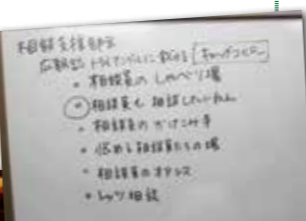 相談支援部会
広報誌 トライアングルに載せる
・相談員の しゃべり場
・相談員も 相談したいねん
・相談員の かけこみ寺
・悩める相談員たちの場
・相談員のオアシス
・相談